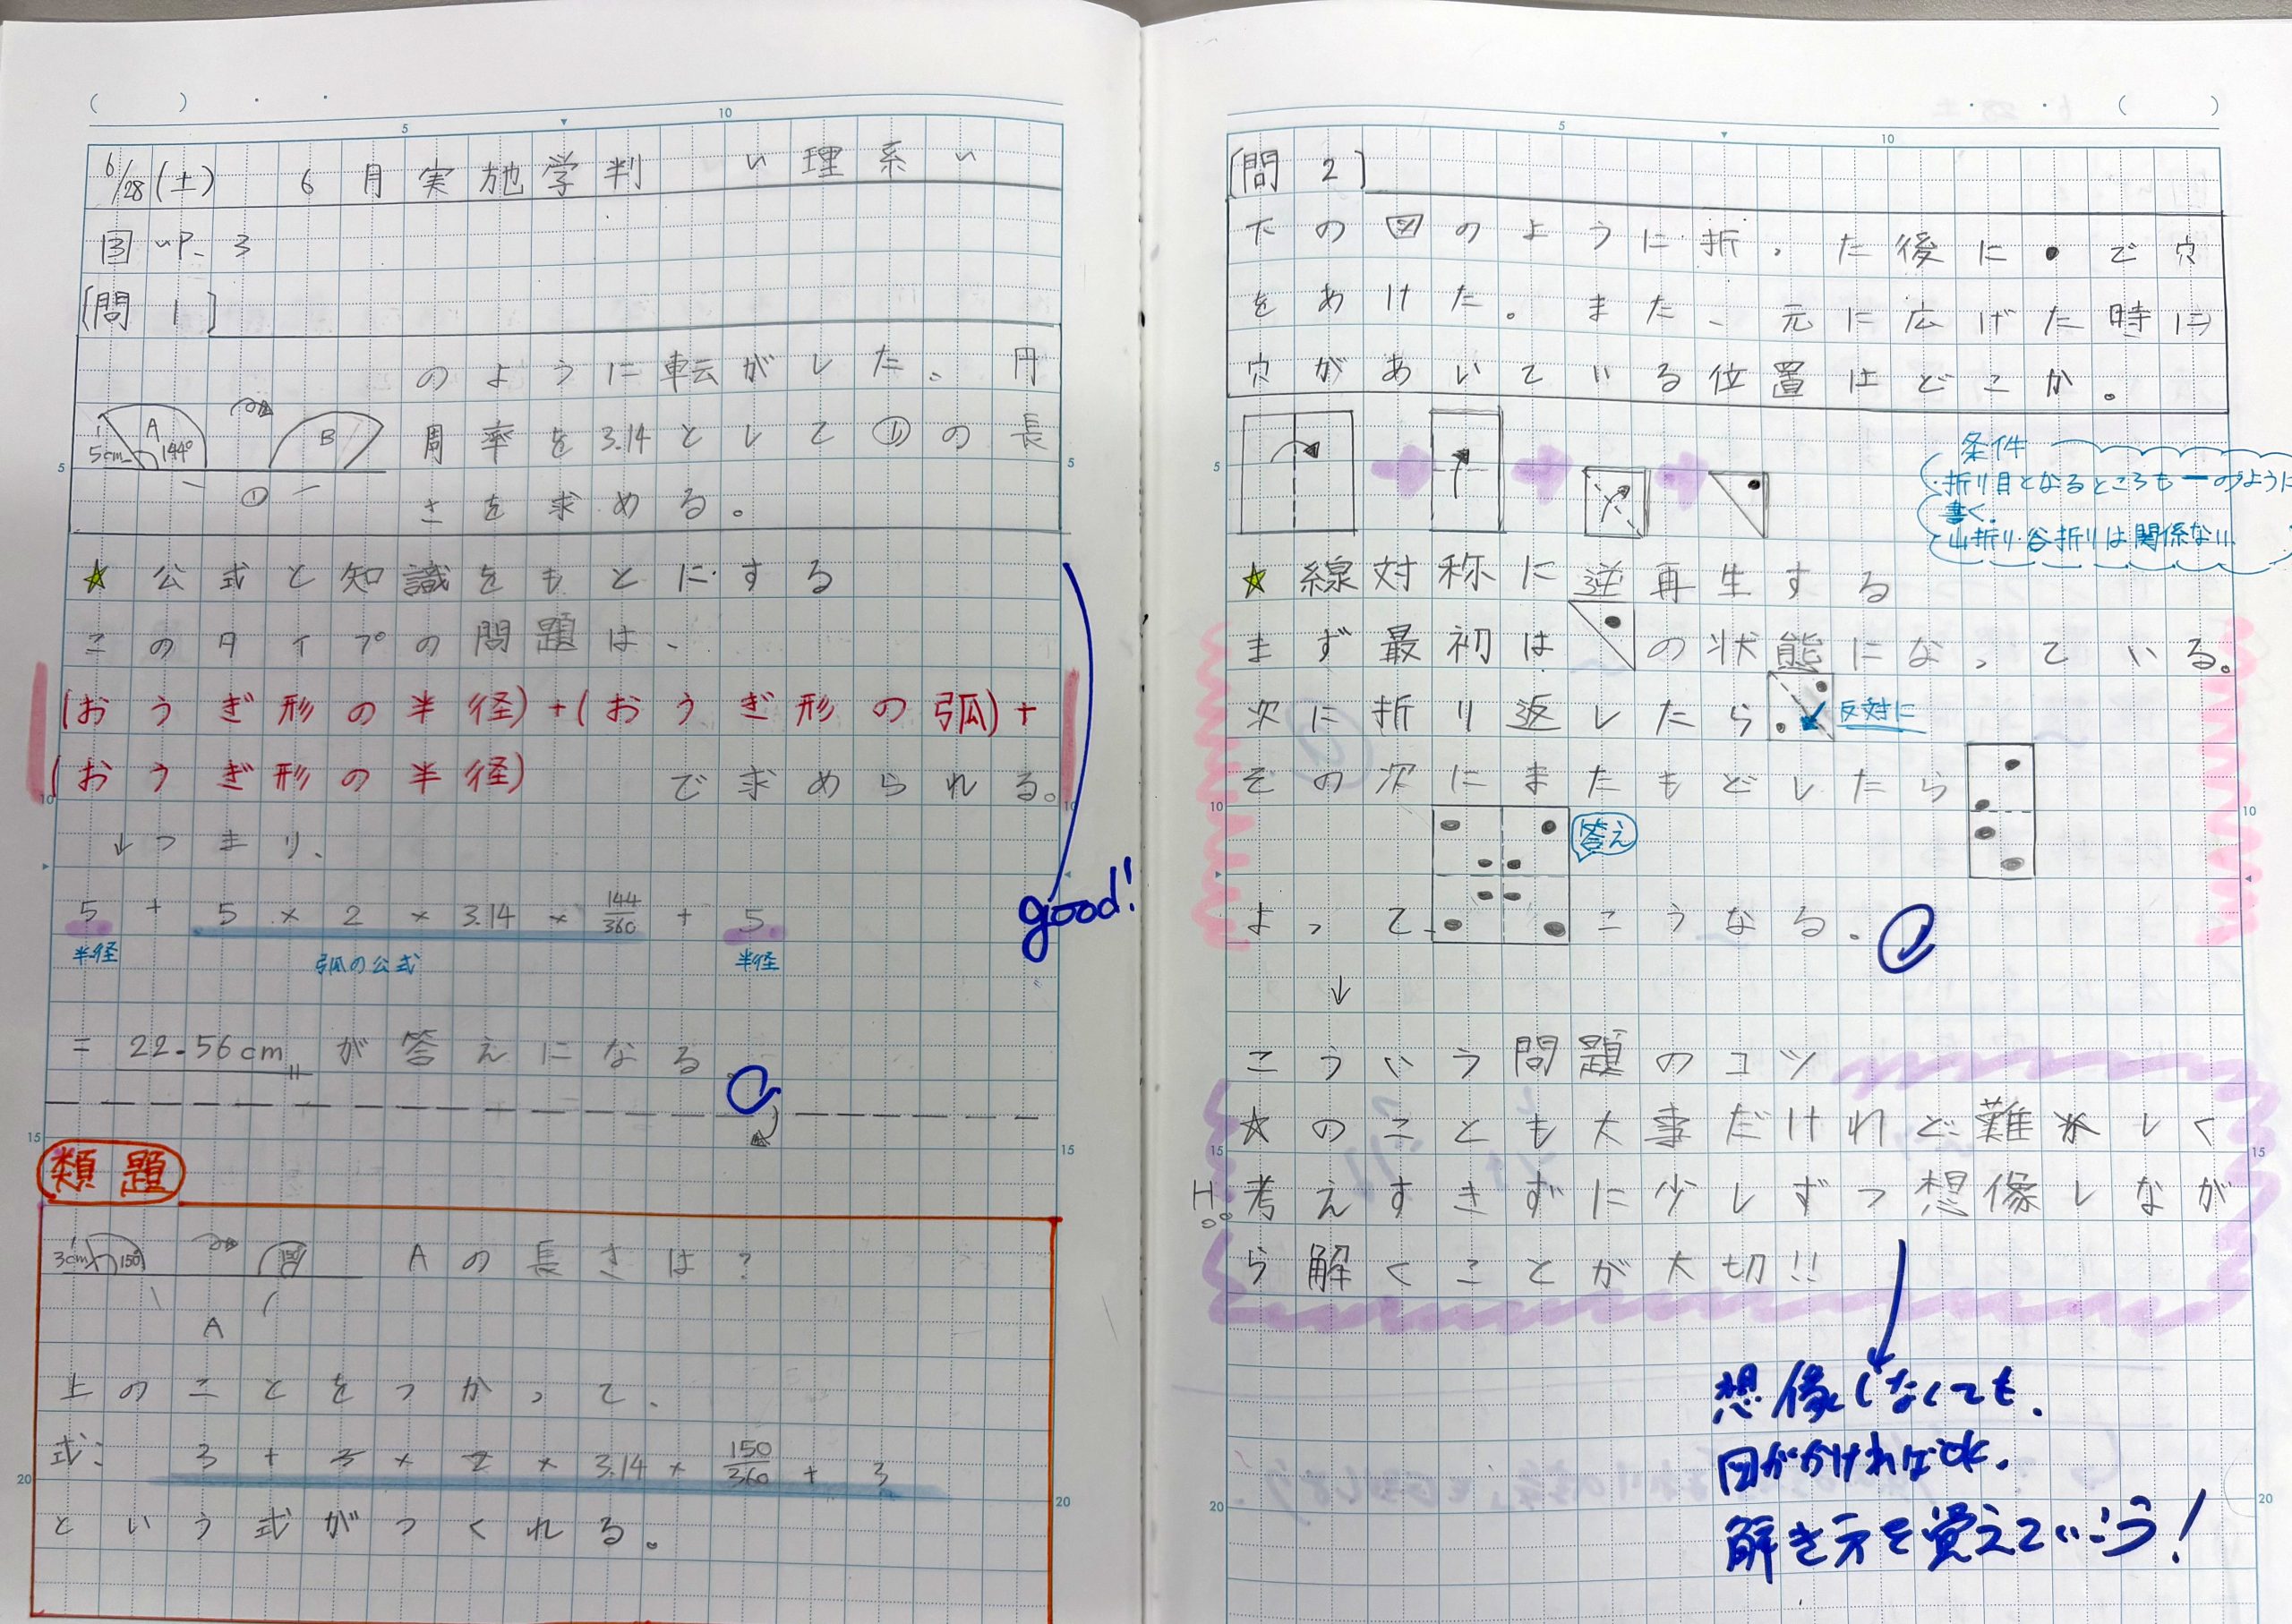 6/28(土) 6月実施学判 〃理系〃
③〜P.3
[問 1]
のように転がした。円
周率を3.14として①の長
さを求める。
A
5cm
144°
B
①
☆公式と知識をもとにする
このタイプの問題は、
(おうぎ形の半径)+(おうぎ形の弧)+
(おうぎ形の半径)で求められる。
↓つまり、
5 + 5 × 2 × 3.14 × 144/360 + 5
半径 弧の公式 半径
good!
= 22.56cm が答えになる
類題
3cm 150° 150°
Aの長さは?
A
上のことをつかって、
式: 3 + 3 × 2 × 3.14 × 150/360 + 3
という式がつくれる。
[問 2]
下の図のように折った後に●で穴
をあけた。また、元に広げた時に
穴があいている位置はどこか。
条件
・折り目となるところも一のように
書く.
山折り・谷折りは関係ない.
☆線対称に逆再生する
まず最初はの状態になっている。
次に折り返したら
反対に
その次にまたもどしたら
答え
よって、こうなる.
↓
こういう問題のコツ
☆のことも大事だけれど、難しく
考えすぎずに少しずつ想像しなが
ら解くことが大切!!
想像しなくても、
図がかければOK.
解き方を覚えていこう!